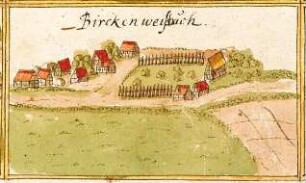 Birckenweißbuch.